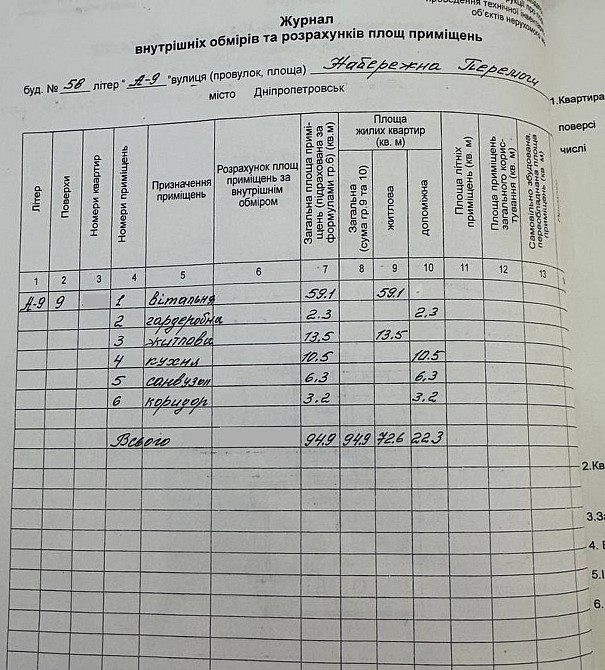 проведення технічної інвентар
об'єктів нерухомого
Журнал
внутрішніх обмірів та розрахунків площ приміщень
буд. № 58 літер " А-9 "вулиця (провулок, площа) Набережна Перемоги
місто Дніпропетровськ
1.Квартира
поверсі
числі
Літер
Поверхи
Номери квартир
Номери приміщень
Призначення приміщень
Розрахунок площ приміщень за внутрішнім обміром
Загальна площа приміщень (підрахована за формулами гр.6) (кв.м)
Площа жилих квартир (кв. м)
Загальна (сума гр.9 та 10)
житлова
допоміжна
Площа літніх приміщень (кв. м)
Площа приміщень загального користування (кв. м)
Самовільно збудована, переобладнана площа приміщень (кв. м)
1 2 3 4 5 6 7 8 9 10 11 12 13
А-9 9 1 вітальня 59.1 59.1
2 гардеробна 2.3 2,3
3 житлова 13,5 13.5
4 кухня 10.5 10.5
5 санвузол 6,3 6,3
6 коридор 3.2 3.2
Всього 94,9 94,9 72.6 22.3
2.Кв
3.За
4.
5.І
6.